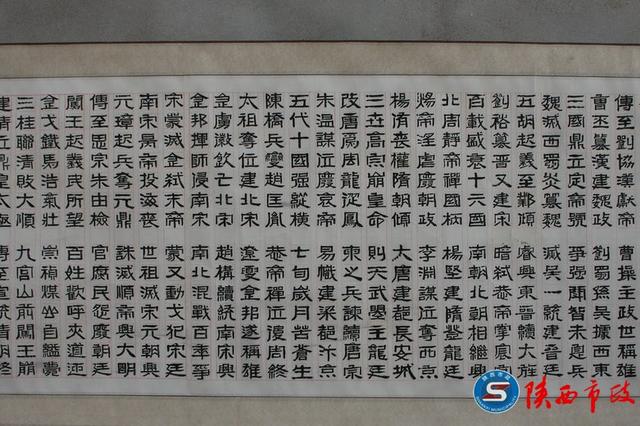 傳至劉協漢獻帝 曹操主政世稱雄
曹丕篡漢建魏政 劉蜀孫吳據西東
三國鼎立定帝號 爭強鬥智未息兵
魏滅西蜀炎篡魏 滅吳一統建晉廷
五胡起義至 睿興東晉續大旌
劉裕篡晉又建 暗弒恭帝掌寰
百載盛衰十六國 南朝北朝相繼興
北周靜帝禪國柄 楊堅建隋登龍廷
煬帝淫虐廢朝政 李淵謀位奪西京
楊侑喪權隋朝傾 太唐建都長安城
三立高宗崩皇命 則天武曌主龍廷
改唐爲周龍從鳳 柬之兵諫續唐宗
朱溫謀位廢哀帝 易幟建梁都汴京
五代十國強縱橫 七旬歲月苦蒼生
陳橋兵變趙匡胤 恭帝禪位後周終
太祖奪位建北宋 遼夏金邦遂稱雄
金虜徽欽亡北宋 趙構續統南宋興
金邦揮師侵南宋 南北混戰百年爭
宋蒙滅金弒末帝 蒙又動戈犯宋廷
南宋昺帝投滋喪 世祖滅宋元朝興
元璋起兵奪元鼎 誅滅順帝興大明
傳至思宗朱由檢 官腐民怨廢朝廷
闖王起義民所望 百姓歡呼夾道迎
金戈鐵馬浩氣壯 崇禎煤山自縊薨
三桂聯清敗大順 九宮山前闖王崩
建清 鼎皇太極 傳至宣統清朝終
陕西市政